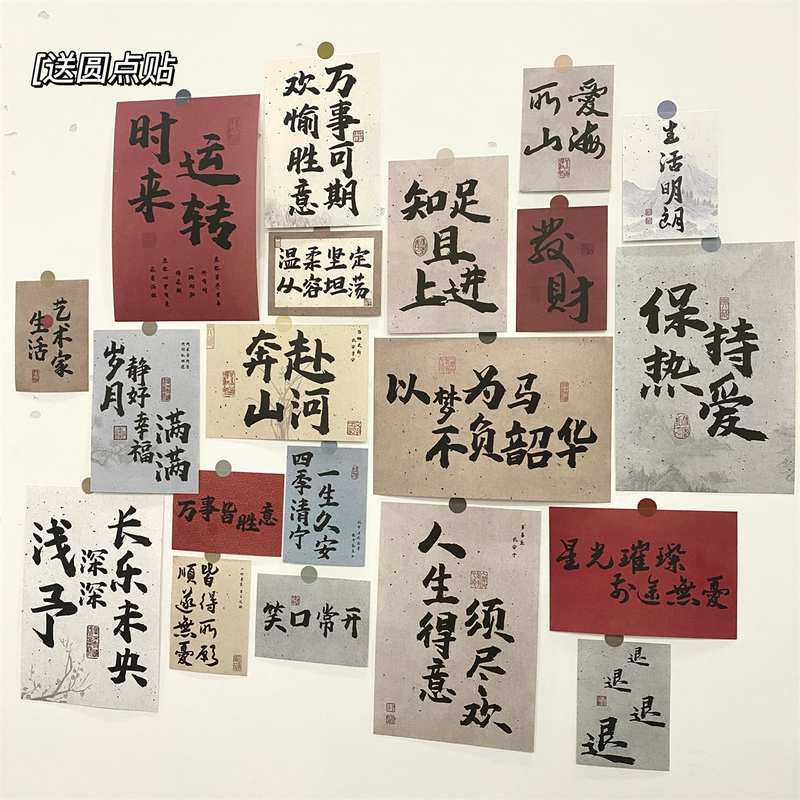 [送圆点贴
时来
运转
万事可期
欢愉胜意
所爱
山海
生活明朗
知足
且
上进
發財
温柔坚定
从容坦荡
保持
热爱
艺术家
生活
岁月
静好
幸福
满满
奔赴
山河
以梦为马
不负韶华
万事皆胜意
一生久安
四季清宁
长乐未央
深深
浅予
皆得所願
順遂無憂
笑口常开
人生得意
须尽欢
星光璀璨
前途無憂
退
退
退
退